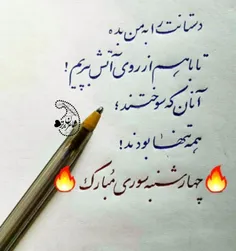 دستانت را به من بده
تا با هم از روی آتش بپریم!
آنان که سوختند؛
همه تنها بودند!
چهارشنبه سوری مبارک